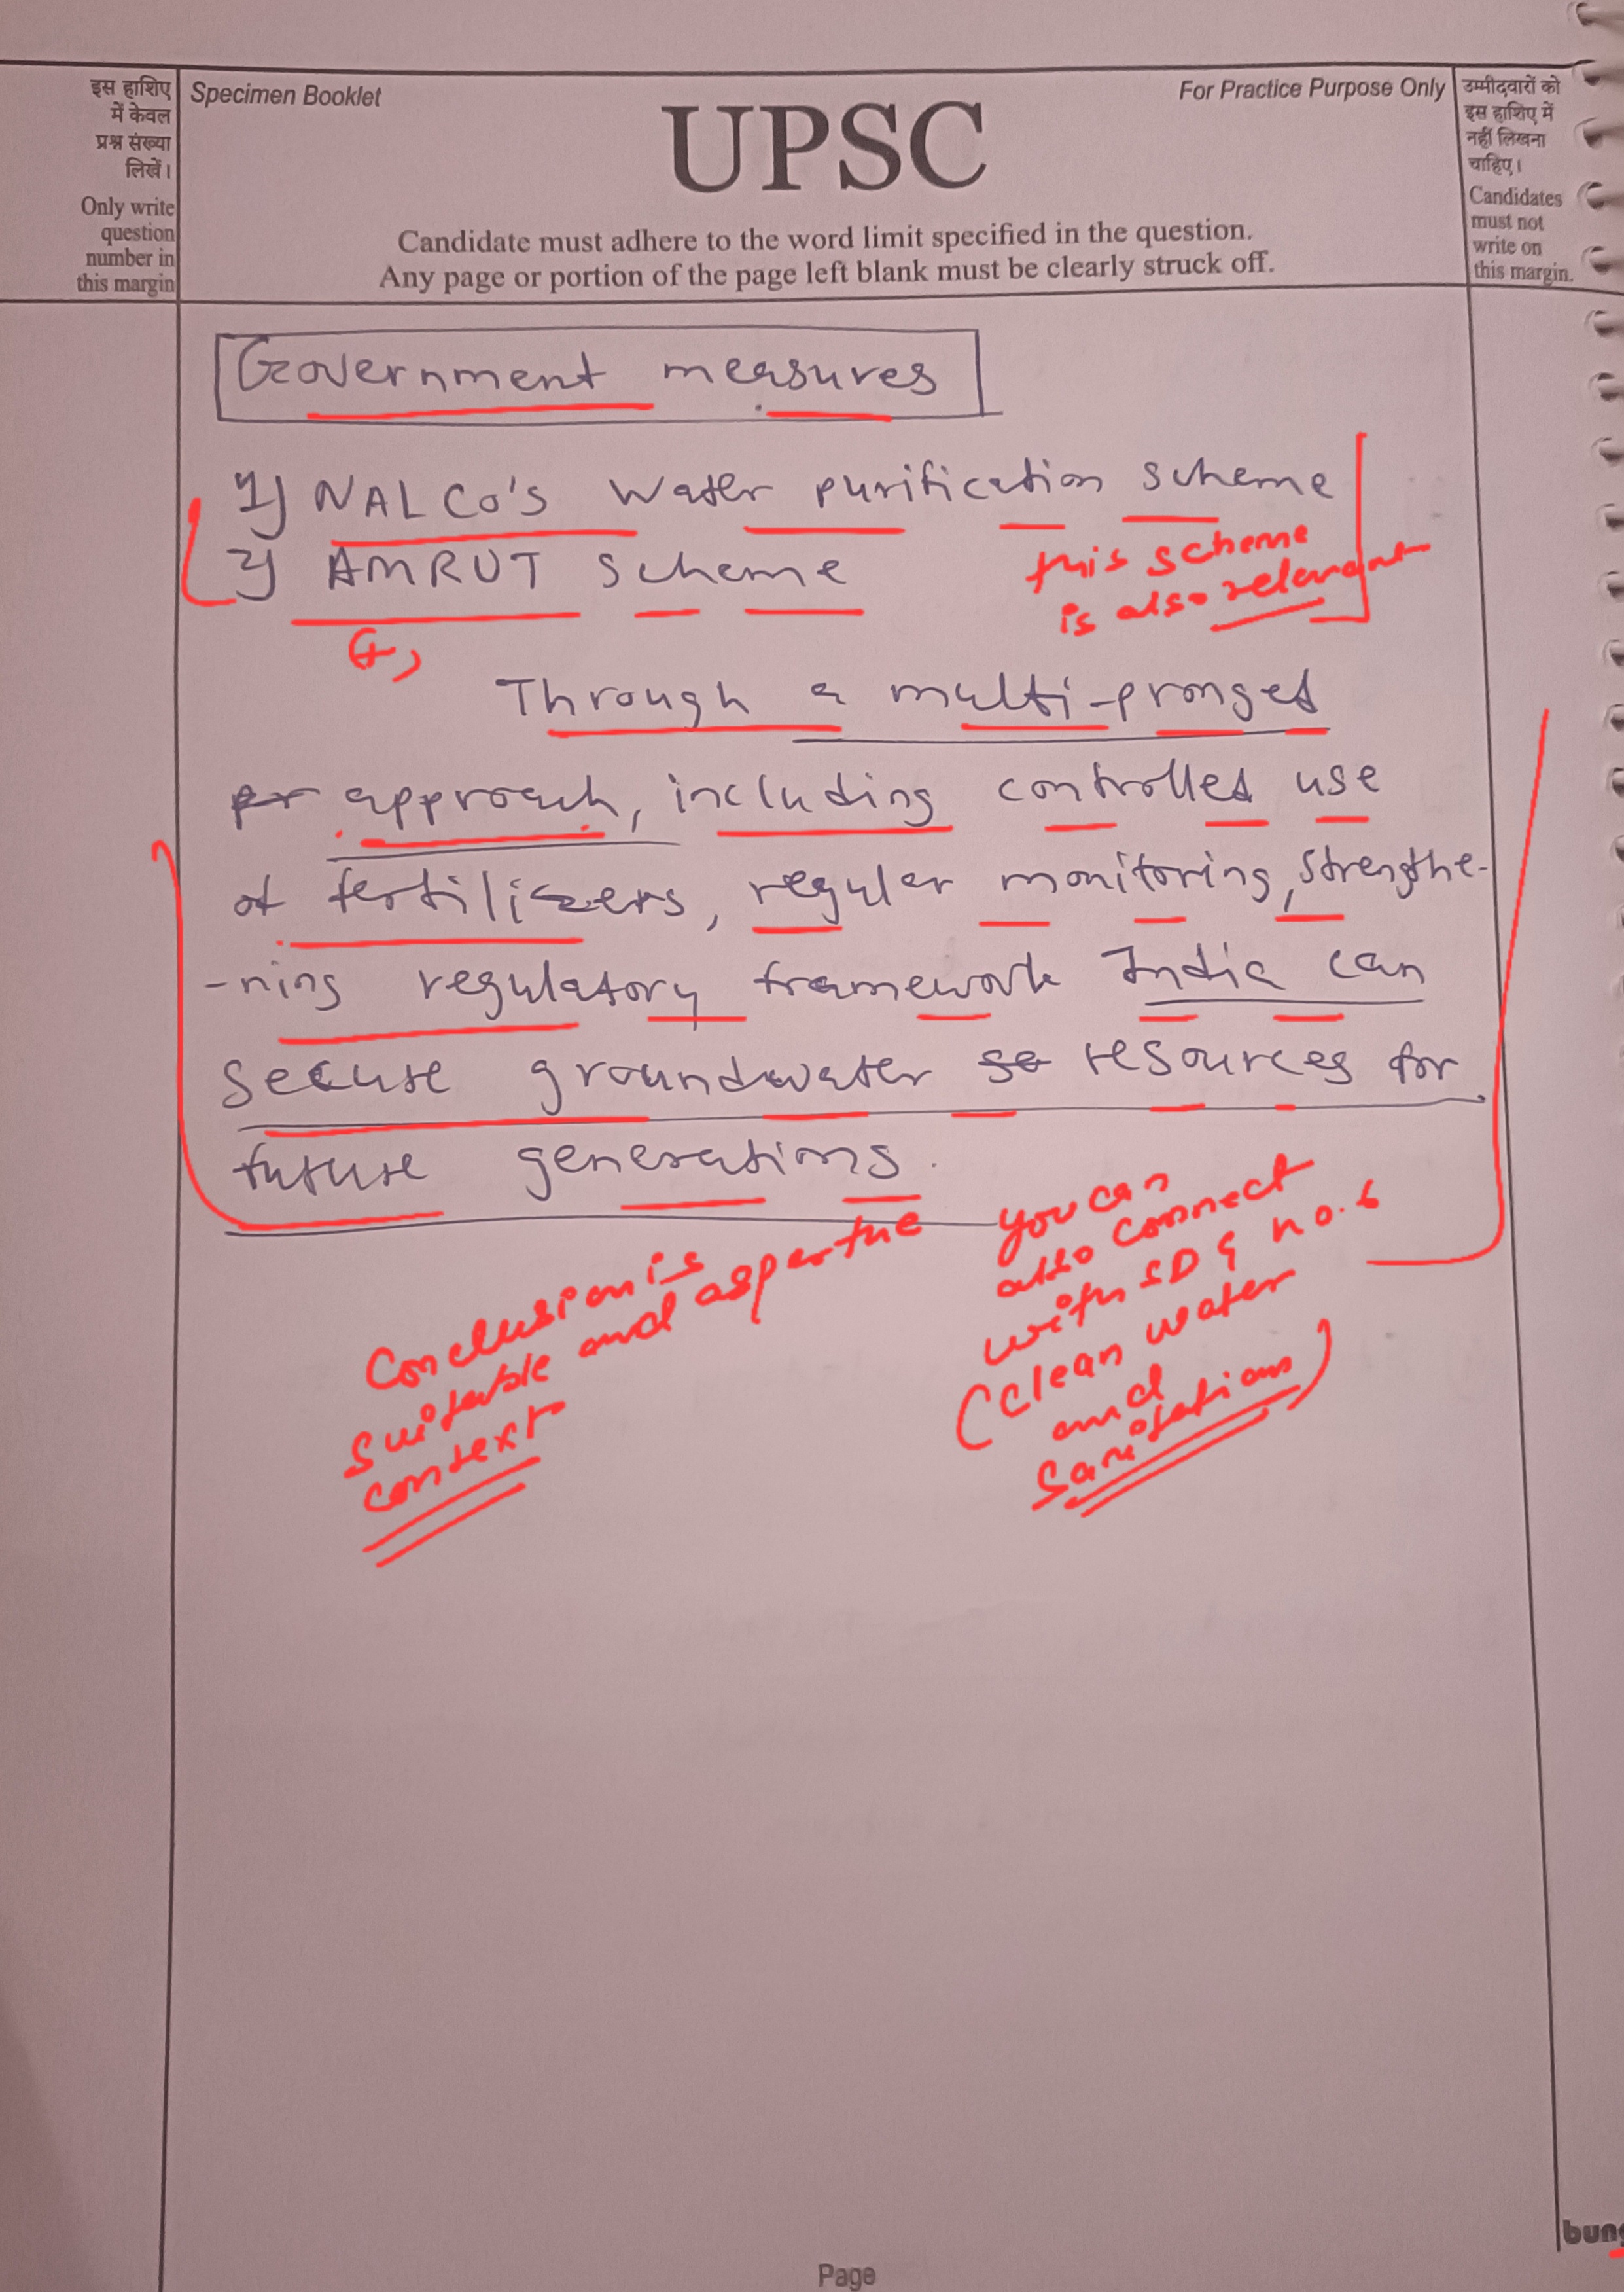 इस हाशिए
में केवल
प्रश्न संख्या
लिखें।
Only write
question
number in
this margin
Specimen Booklet
For Practice Purpose Only
UPSC
Candidate must adhere to the word limit specified in the question.
Any page or portion of the page left blank must be clearly struck off.
उम्मीदवारों को
इस हाशिए में
नहीं लिखना
चाहिए।
Candidates
must not
write on
this margin.
Government measures
1) NALCO's Water purification scheme
2) AMRUT scheme
this scheme
is also relevant
Through a multi-pronged
approach, including controlled use
of fertilizers, regular monitoring, strengthe-
-ning regulatory framework India can
secure groundwater resources for
future generations.
Conclusion is
suitable and as per the
context
you can
also connect
with SDG no. 6
(Clean water
and
Sanitation)
Page